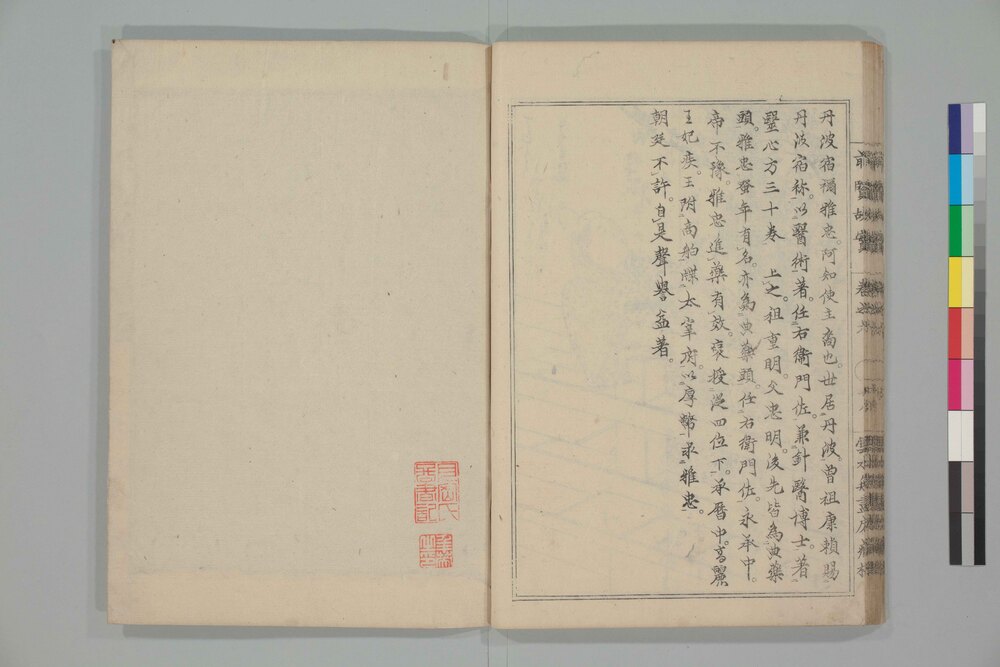 丹波宿禰雅忠。阿知使主裔也。世居丹波。曾祖康賴賜
丹波宿祢。以醫術著。任右衞門佐。兼針醫博士。著
毉心方三十卷　上之。祖重明。父忠明。後先皆為典藥
頭。雅忠登年有名。亦為典藥頭。任右衛門佐。永承中。
帝不豫。雅忠進藥有效。褒授從四位下。承曆中。高麗
王妃疾。王附商舶牒太宰府。以厚幣求雅忠。
朝廷不許。自是聲譽益著。
前賢故實